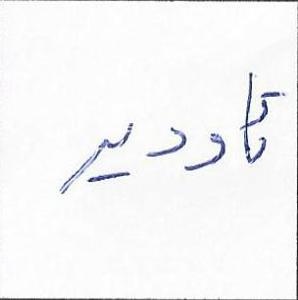 گاودیر